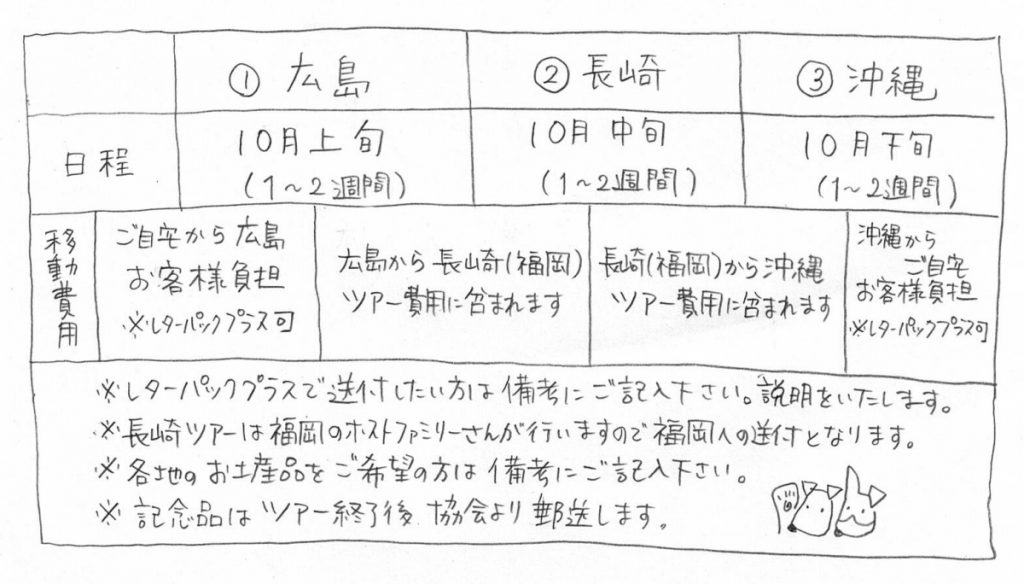 ① 広島
② 長崎
③ 沖縄
日程
10月上旬
(1〜2週間)
10月中旬
(1〜2週間)
10月下旬
(1〜2週間)
移動費用
ご自宅から広島
お客様負担
※レターパックプラス可
広島から長崎(福岡)
ツアー費用に含まれます
長崎(福岡)から沖縄
ツアー費用に含まれます
沖縄から
ご自宅
お客様負担
※レターパックプラス可
※レターパックプラスで送付したい方は備考にご記入下さい。説明をいたします。
※長崎ツアーは福岡のホストファミリーさんが行いますので福岡への送付となります。
※各地のお土産品をご希望の方は備考にご記入下さい。
※記念品はツアー終了後 協会より郵送します。